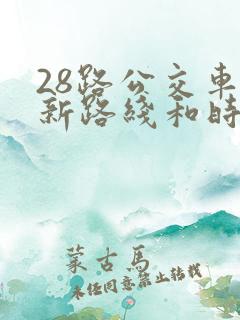 28路公交车
新路线和时
蒙古马
未经同意禁止转载